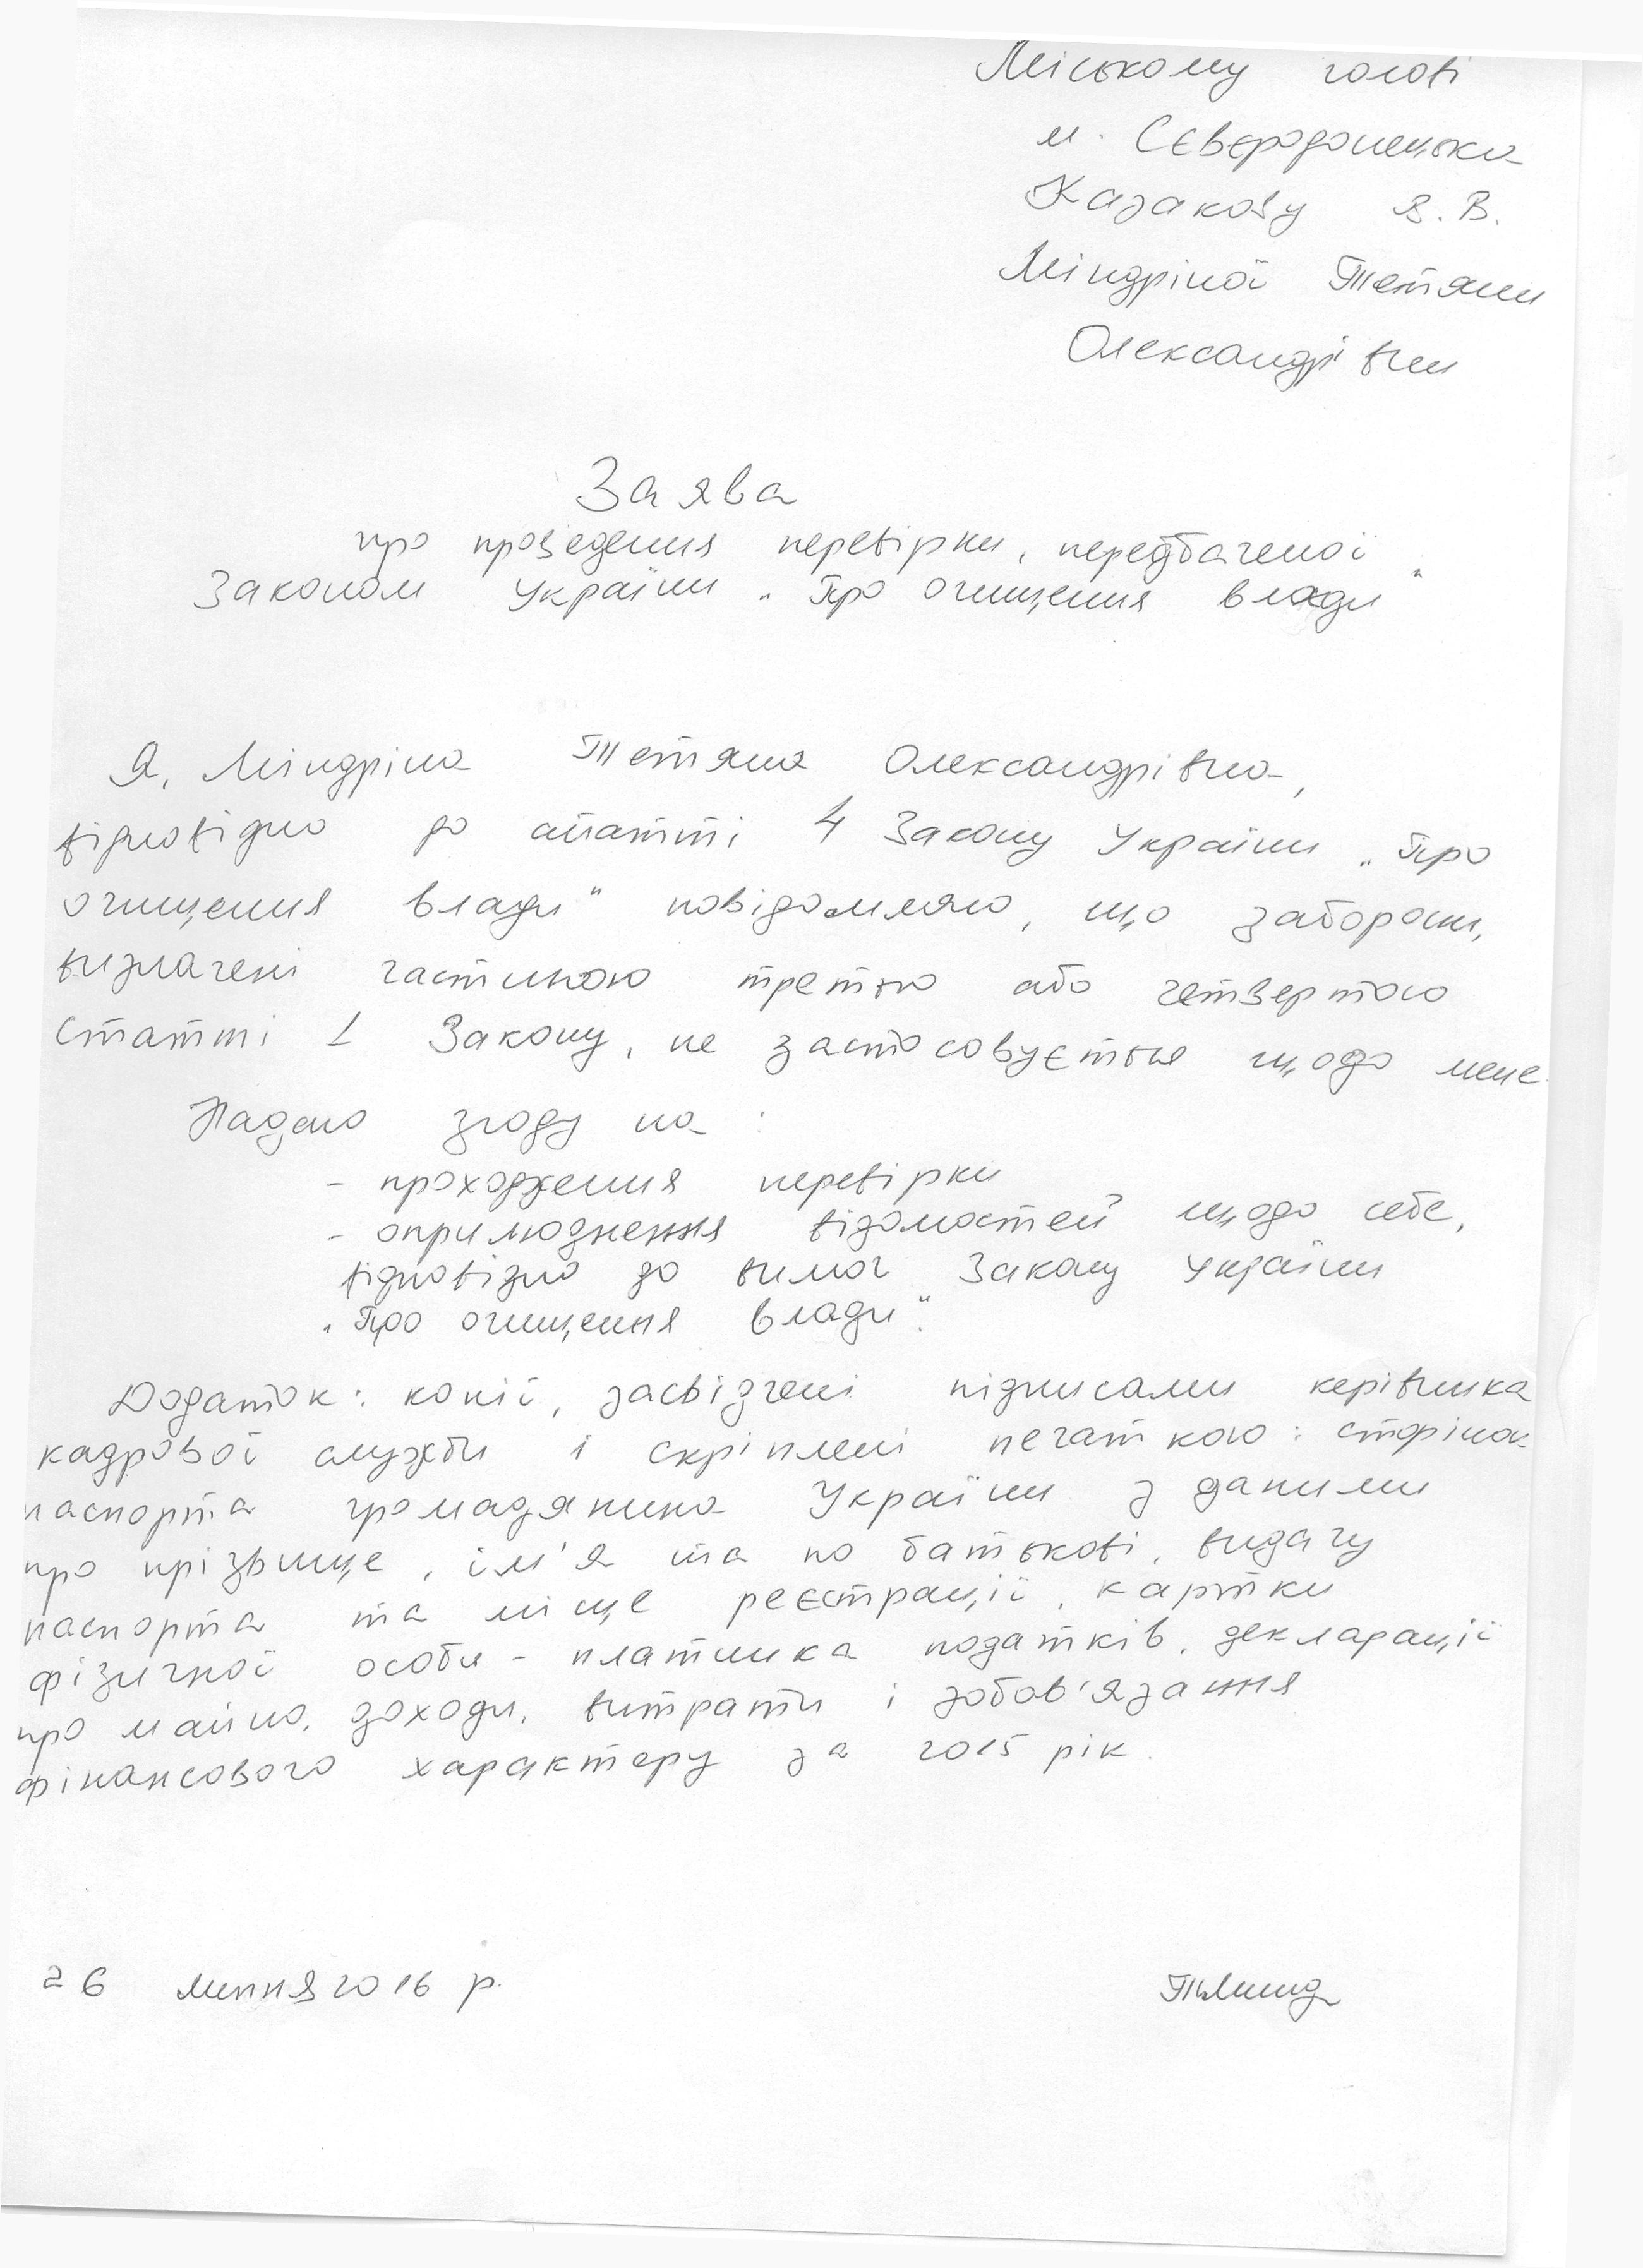 Міському голові
м. Сєвєродонецька
Казакову В.В.
Міндріної Тетяни
Олександрівни
Заява
про проведення перевірки, передбаченої
Законом України „Про очищення влади"
Я, Міндріна Тетяна Олександрівна,
відповідно до статті 4 Закону України „Про
очищення влади" повідомляю, що заборони,
визначені частиною третьою або четвертою
статті 1 Закону, не застосовується щодо мене.
Надаю згоду на:
- проходження перевірки
- оприлюднення відомостей щодо себе,
відповідно до вимог Закону України
„Про очищення влади".
Додаток: копії, засвідчені підписами керівника
кадрової служби і скріплені печаткою: сторінок
паспорта громадянина України з даними
про прізвище, ім'я та по батькові, видачу
паспорта та місце реєстрації, картки
фізичної особи - платника податків, декларації
про майно, доходи, витрати і зобов'язання
фінансового характеру за 2015 рік.
26 липня 2016 р.